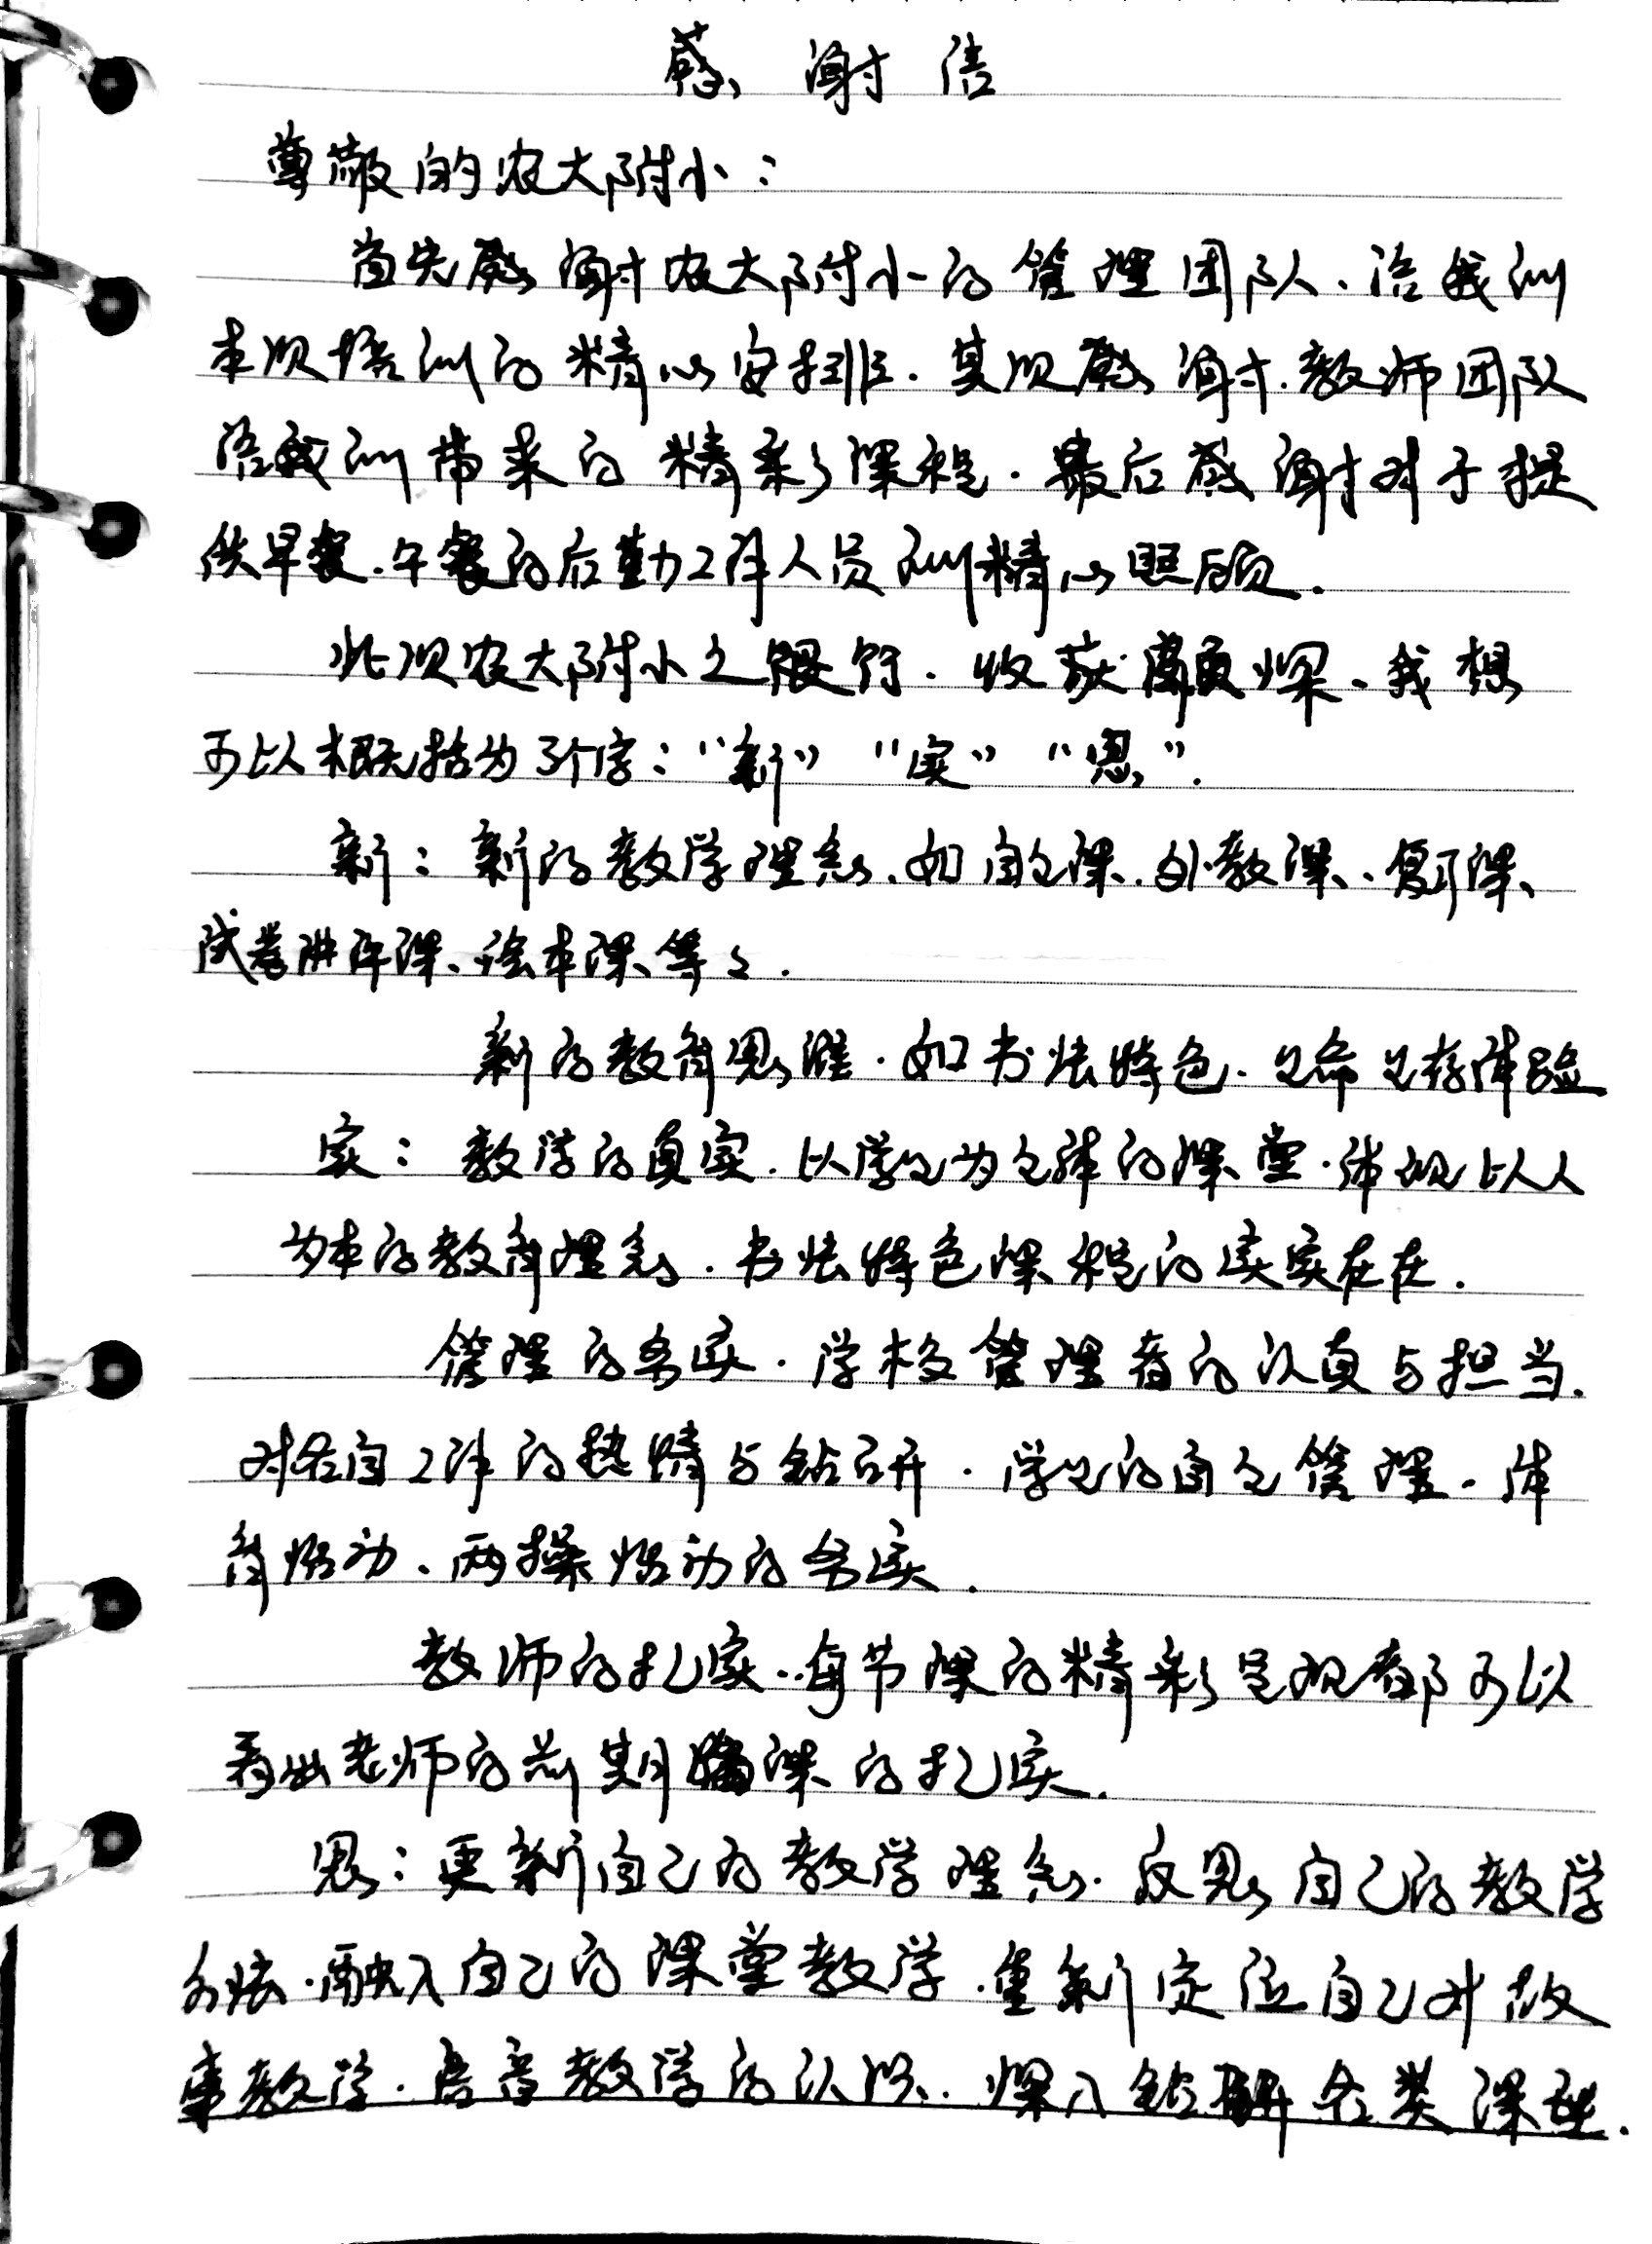 感谢信
尊敬的农大附小：
首先感谢农大附小的管理团队、给我们
本次培训的精心安排.其次感谢.教师团队
给我们带来的精彩课程.最后感谢对于提
供早餐.午餐的后勤工作人员们精心照顾.
此次农大附小之跟岗.收获颇深、我想
可以概括为3个字：“新”“实”“思”.
新：新的教学理念.如自主课.外教课、复习课、
试卷讲评课、绘本课等等.
新的教育思维.如书法特色.生命生存体验
实：教学的真实.以学生为主体的课堂.体现以人
为本的教育理念.书法特色课程的实实在在.
管理的务实.学校管理者的认真与担当.
对各自工作的热情与钻研.学生的自主管理.体
育活动、两操活动的务实.
教师的扎实..每节课的精彩呈现都可以
看出老师的前期备课的扎实.
思：更新自己的教学理念.反思自己的教学
方法.融入自己的课堂教学.重新定位自己对故
事教学.语音教学的认识.深入钻研各类课型.